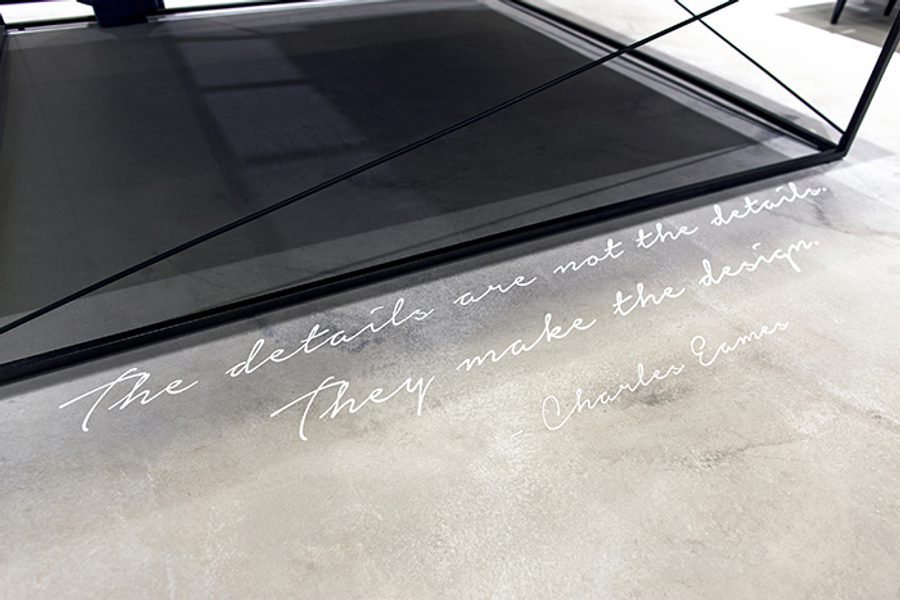 The details are not the details.
They make the design.
- Charles Eames